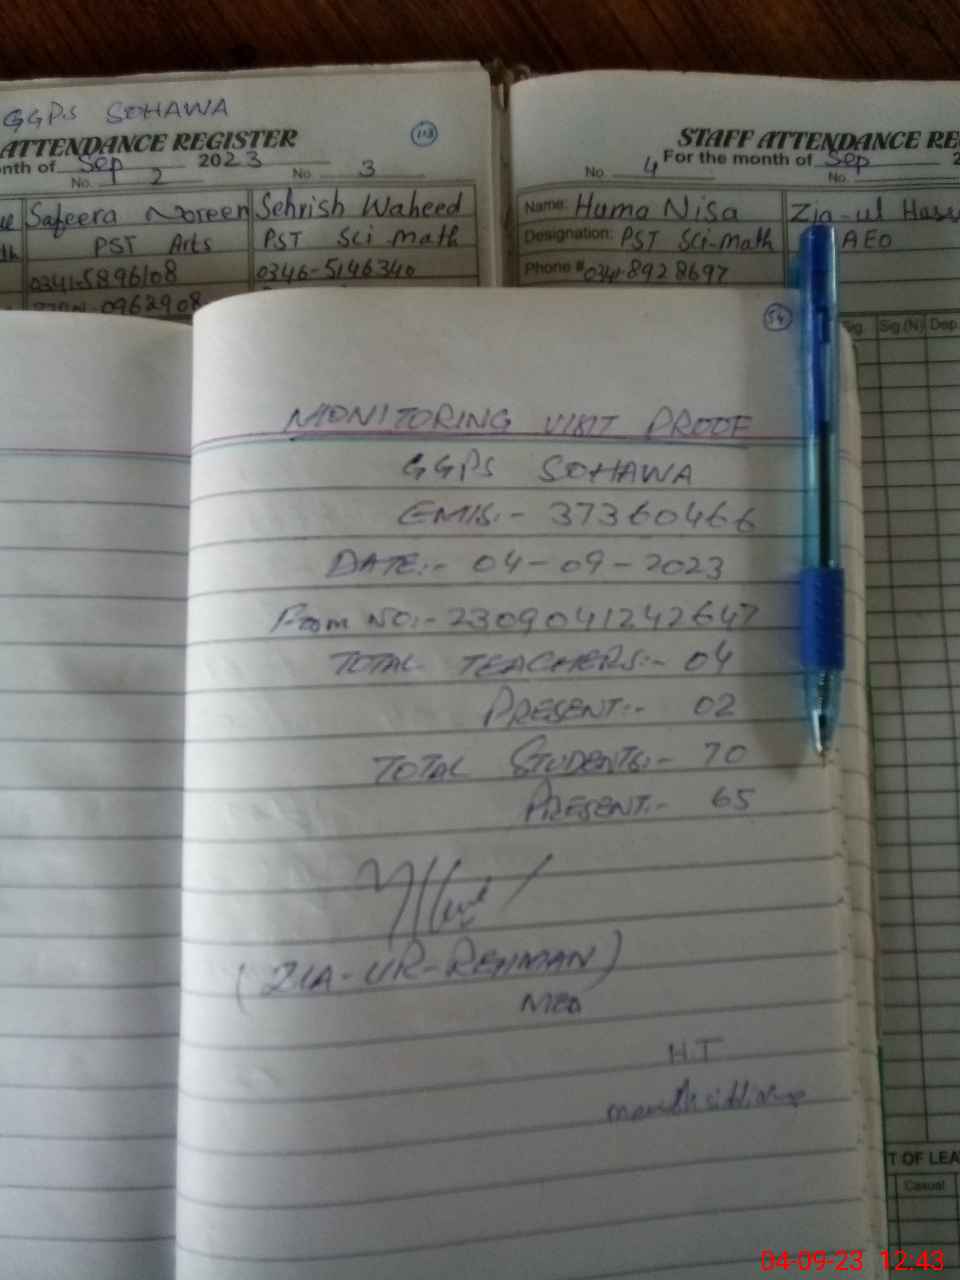 GGPS SOHAWA
ATTENDANCE REGISTER
118
nth of Sep 2023
No. 2
No. 3
Safeera Noreen
Sehrish Waheed
PST Arts
PST Sci math
0341-5896108
0346-5146340
0962908
STAFF ATTENDANCE RE
No. 4
For the month of Sep 2
No.
Name: Huma Nisa
Zia-ul Hass
Designation: PST Sci-math
AEO
Phone # 0341-8928697
54
Sig. Sig.(N) Dep.
MONITORING VISIT PROOF
GGPS SOHAWA
EMIS:- 37360466
DATE:- 04-09-2023
From NO:- 2309041242647
TOTAL TEACHERS:- 04
PRESENT:- 02
TOTAL STUDENTS:- 70
PRESENT:- 65
(ZIA-UR-REHMAN)
MEA
H.T
T OF LEA
Casual
04-09-23 12:43